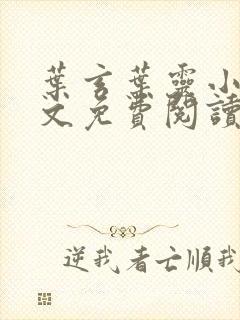 葉言葉靈小
文免費閱讀
逆我者亡順我